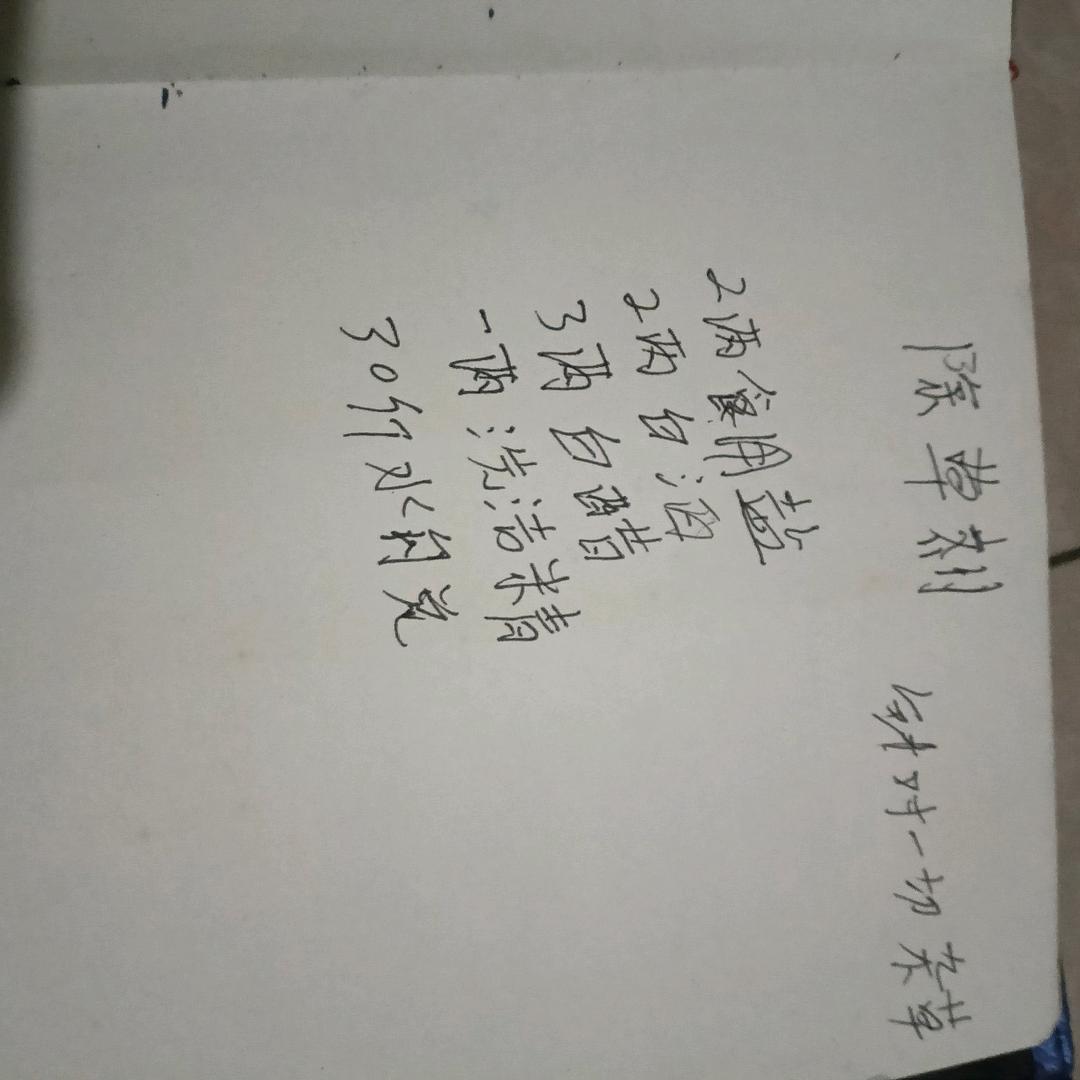 除草剂 针对一切杂草
2两食用盐
2两白酒
3两白醋
一两洗洁精
30斤水勾兑